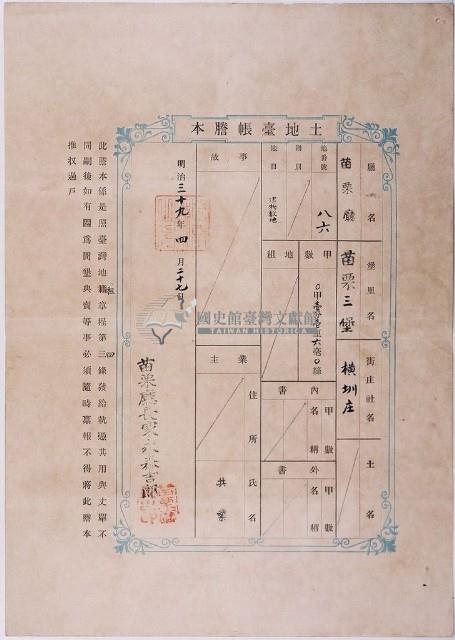 土地臺帳謄本
廳名
苗栗廳
堡里名
苗栗三堡
街庄社名
横圳庄
土名
地番號
八六
則別
地目
建物敷地
甲數
〇甲壹分壹厘六毫〇絲
地租
內書
甲數
名稱
外書
甲數
名稱
事故
業主
住所
氏名
共業
明治三十九年四月二十七日
苗栗廳長家永泰吉郎
此謄本係是照臺灣地租章程第四條發給執過其用與丈單不
同嗣後如有因爲開墾典賣等事必須隨時稟報不得將此謄本
推收過戶
國史館臺灣文獻館
TAIWAN HISTORICA